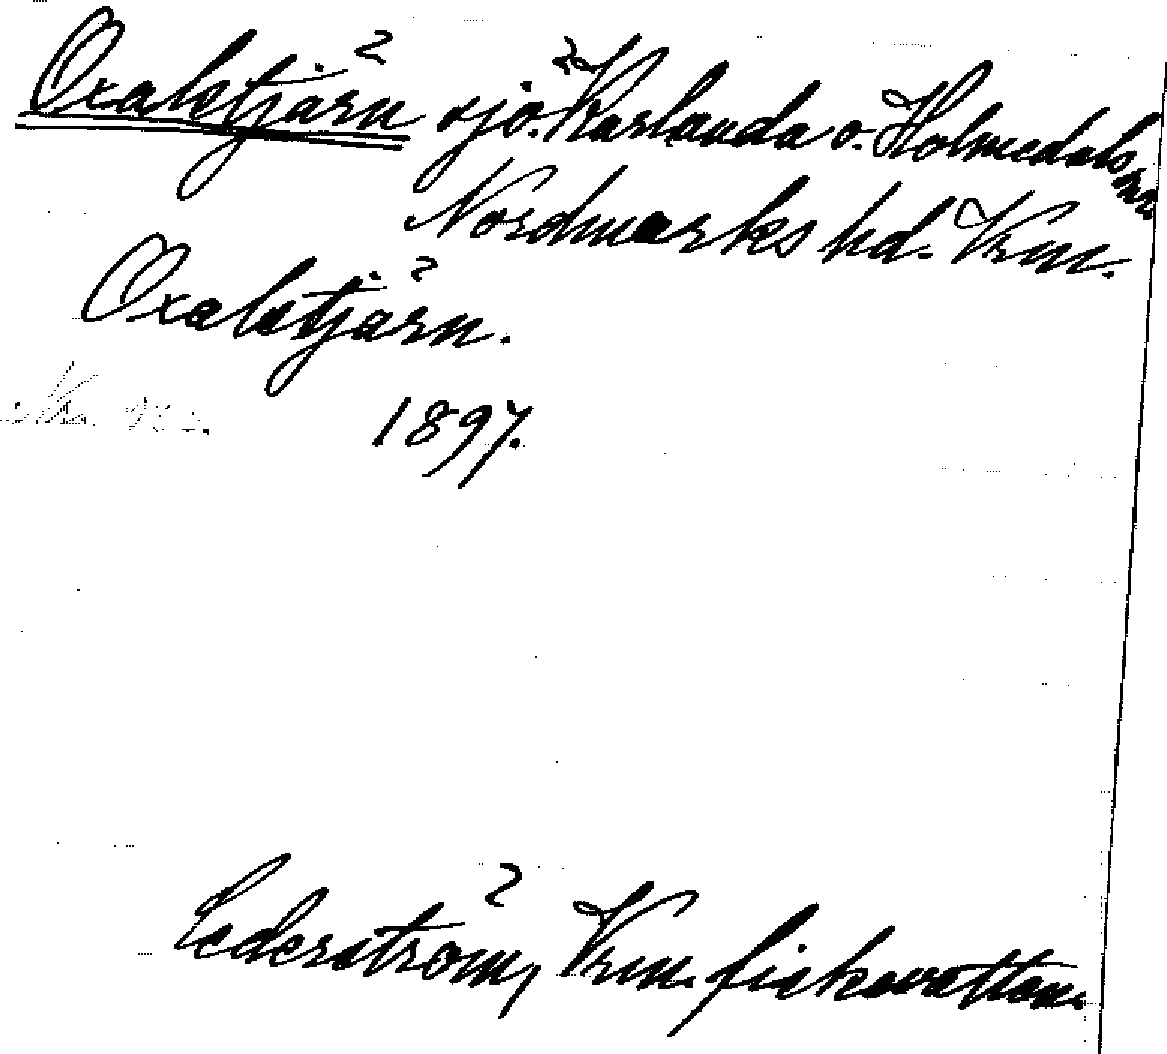 Oxalstjärn sjö. Karlanda o. Holmedals snr
Nordmarks hd. Vrm.
Oxalstjärn.
1897.
Cederström, Vrm. fiskevatten.